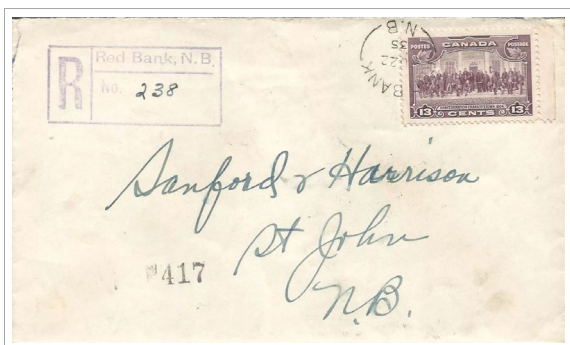 R
Red Bank, N.B.
No. 238
BANK
22
35
N.B.
POSTES CANADA POSTAGE
13 CENTS 13
Sanford & Harrison
St John
N.B.
#417